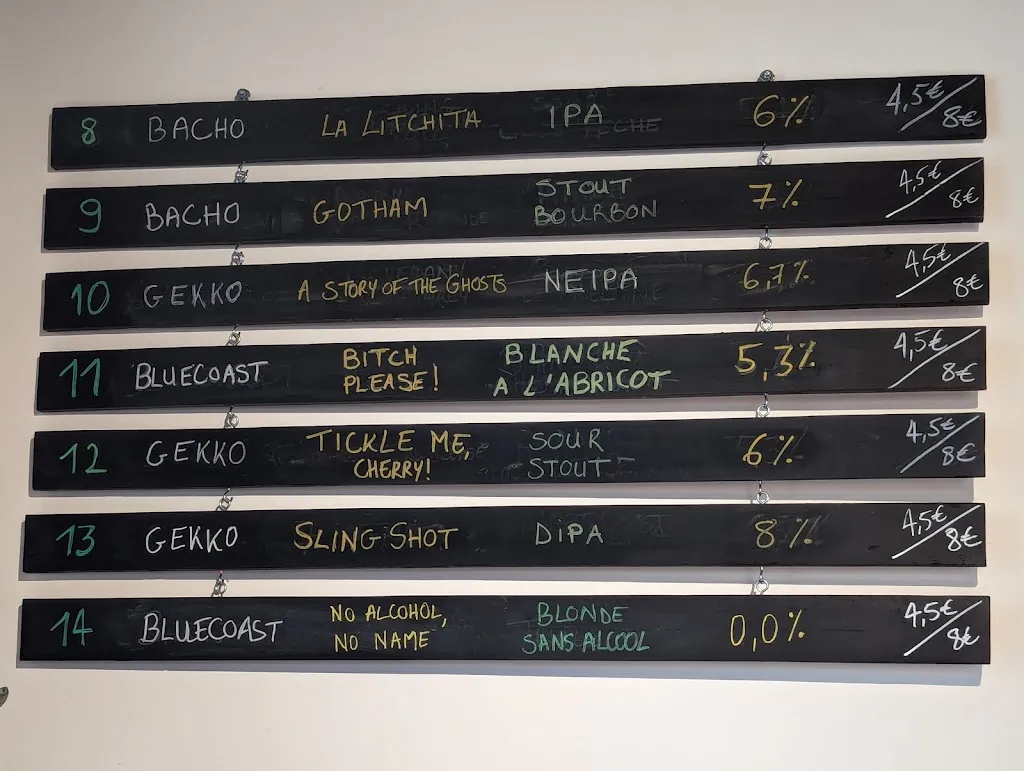 8 BACHO LA LITCHITA IPA 6% 4,5€/8€
9 BACHO GOTHAM STOUT BOURBON 7% 4,5€/8€
10 GEKKO A STORY OF THE GHOSTS NEIPA 6,7% 4,5€/8€
11 BLUECOAST BITCH PLEASE! BLANCHE A L'ABRICOT 5,3% 4,5€/8€
12 GEKKO TICKLE ME, CHERRY! SOUR STOUT 6% 4,5€/8€
13 GEKKO SLING SHOT DIPA 8% 4,5€/8€
14 BLUECOAST NO ALCOHOL, NO NAME BLONDE SANS ALCOOL 0,0% 4,5€/8€